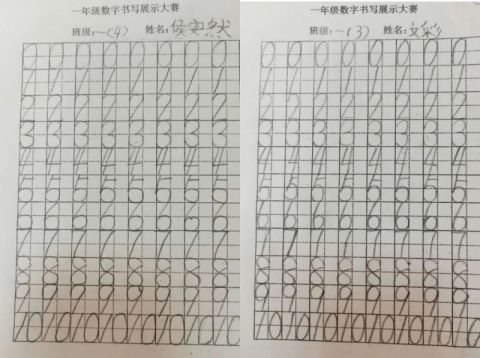 一年级数字书写展示大赛
班级：一(4) 姓名：侯
0 0 0 0 0 0 0 0
1 1 1 1 1 1 1 1
2 2 2 2 2 2 2 2
3 3 3 3 3 3 3 3
4 4 4 4 4 4 4 4
5 5 5 5 5 5 5 5
6 6 6 6 6 6 6 6
7 7 7 7 7 7 7 7
8 8 8 8 8 8 8 8
9 9 9 9 9 9 9 9
10 10 10 10 10 10 10 10
一年级数字书写展示大赛
班级：一(3) 姓名：文彩
0 0 0 0 0 0 0 0
1 1 1 1 1 1 1 1
2 2 2 2 2 2 2 2
3 3 3 3 3 3 3 3
4 4 4 4 4 4 4 4
5 5 5 5 5 5 5 5
6 6 6 6 6 6 6 6
7 7 7 7 7 7 7 7
8 8 8 8 8 8 8 8
9 9 9 9 9 9 9 9
10 10 10 10 10 10 10 10